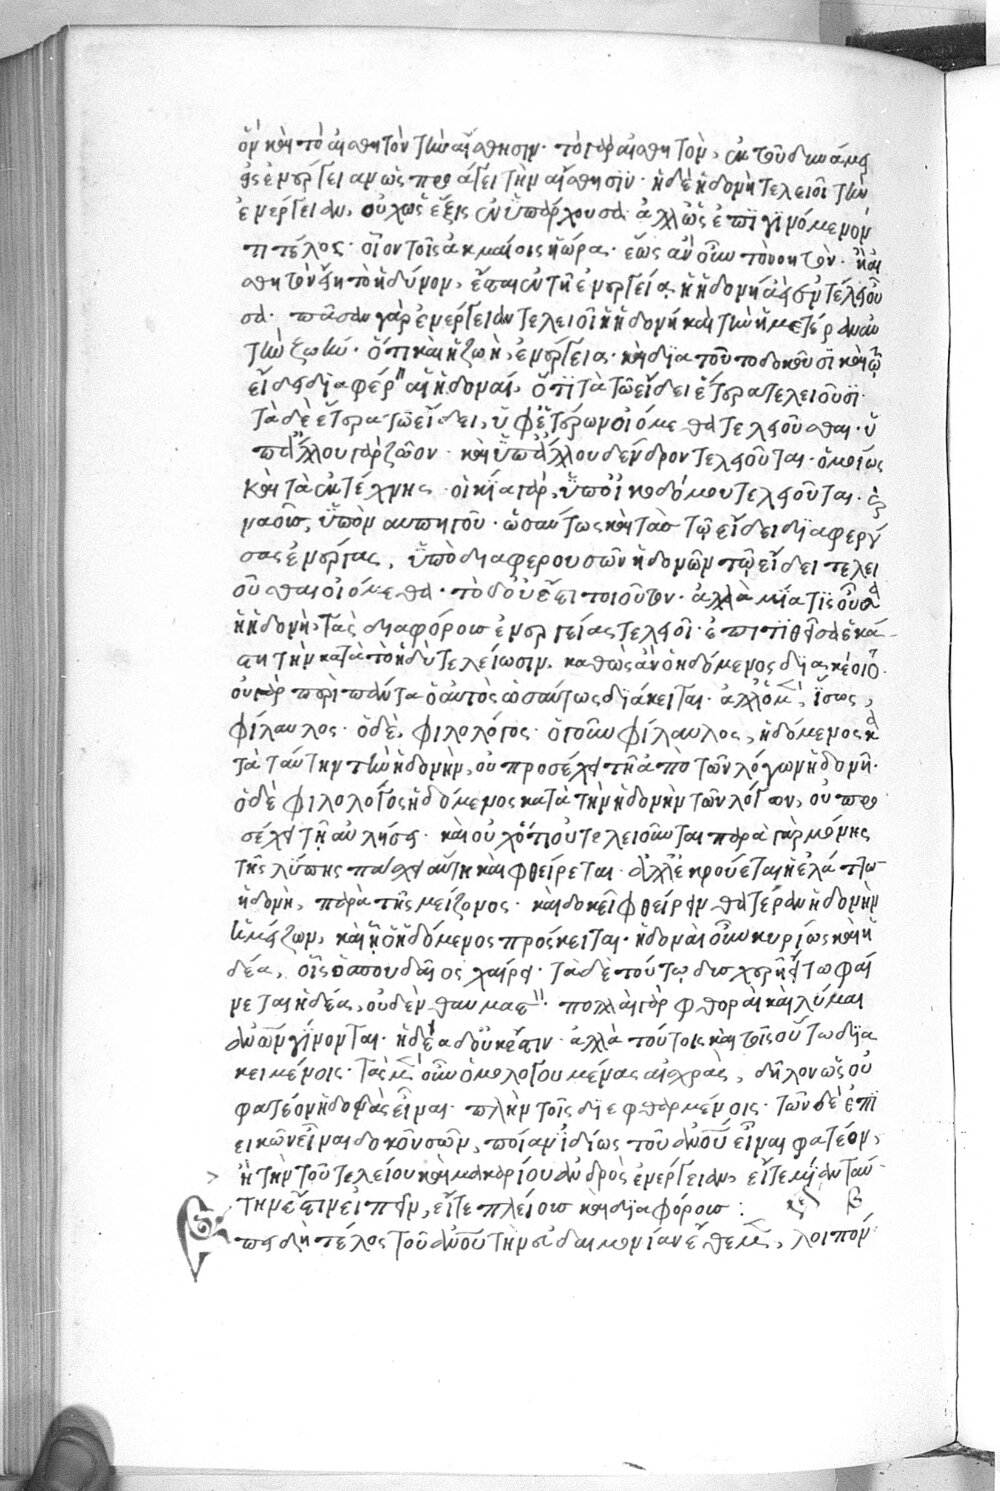 ὂν καὶ τὸ αἰσθητὸν τὴν αἴσθησιν· τὸ γὰρ αἰσθητὸν, ἐκ τοῦ δυνάμει
εἰς ἐνέργειαν ὡς προάγει τὴν αἴσθησιν· ἡ δὲ ἡδονὴ τελειοῖ τὴν
ἐνέργειαν, οὐχ ὡς ἕξις ἐνυπάρχουσα· ἀλλ' ὡς ἐπιγινόμενόν
τι τέλος· οἷον τοῖς ἀκμαίοις ἡ ὥρα· ἕως ἂν οὖν τὸ νοητὸν· ἢ αἰ
σθητὸν ᾖ τὸ ἡδύνον, ἔσται ἐν τῇ ἐνεργείᾳ ἡ ἡδονὴ ἀεὶ τελειοῦ
σα· πᾶσαν γὰρ ἐνέργειαν τελειοῖ ἡ ἡδονὴ καὶ τὴν ἡμετέραν αὐ
τὴν ζωήν· ὅτι καὶ ἡ ζωὴ, ἐνέργεια· καὶ διὰ τοῦτο δοκοῦσι καὶ τῷ
εἴδει διαφέρειν αἱ ἡδοναὶ, ὅτι τὰ τῷ εἴδει ἕτερα τελειοῦσι·
τὰ δὲ ἕτερα τῷ εἴδει, ὑφ' ἑτέρων οἰόμεθα τελειοῦσθαι· ὑ
π' ἄλλου γὰρ ζῶον· καὶ ὑπ' ἄλλου δένδρον τελειοῦται· ὁμοίως
καὶ τὰ ἐκ τέχνης· οἰκία γὰρ, ὑπὸ οἰκοδόμου τελειοῦται·
ναῦς, ὑπὸ ναυπηγοῦ· ὡσαύτως καὶ τὰς τῷ εἴδει διαφερού
σας ἐνεργείας, ὑπὸ διαφερουσῶν ἡδονῶν τῷ εἴδει τελει
οῦσθαι οἰόμεθα· τὸ δ' οὐχ ἕξει τοιοῦτον· ἀλλὰ μία τις οὖσα
ἡ ἡδονὴ, τὰς διαφόρους ἐνεργείας τελειοῖ· ἐπιτιθεῖσα ἑκά-
στῃ τὴν κατὰ τὸ ἡδὺ τελείωσιν, καθὼς ἂν ὁ ἡδόμενος διακέοιτο·
οὐ γὰρ περὶ πάντα ὁ αὐτὸς ὡσαύτως διάκειται· ἀλλ' ὁ μὲν, ἴσως,
φίλαυλος· ὁ δὲ, φιλολόγος· ὁ γοῦν φίλαυλος, ἡδόμενος κα
τὰ ταύτην τὴν ἡδονὴν, οὐ προσέχει τῇ ἀπὸ τῶν λόγων ἡδονῇ·
ὁ δὲ φιλολόγος ἡδόμενος κατὰ τὴν ἡδονὴν τῶν λόγων, οὐ προ
σέχει τῇ αὐλήσει· καὶ οὐχ ὅτι οὐ τελειοῦνται παρὰ γὰρ μόνης
τῆς λύπης πάσχει αὕτη καὶ φθείρεται· ἀλλ' ἐκκρούεται ἡ ἐλάττων
ἡδονὴ, παρὰ τῆς μείζονος· καὶ δοκεῖ φθείρειν θατέραν ἡδονὴν
ἡ μείζων, καὶ ᾗ ὁ ἡδόμενος πρόσκειται· ἡδοναὶ οὖν κυρίως καὶ ἡ
δέα, οἷς ὁ σπουδαῖος χαίρει· τὰ δὲ τούτῳ δυσχερῆ εἴ τῳ φαί
νεται ἡδέα, οὐδὲν θαυμαστόν· πολλαὶ γὰρ φθοραὶ καὶ λύμαι
ἀνθρώπων γίνονται· ἡδέα δ' οὐκ ἔστιν· ἀλλὰ τούτοις καὶ τοῖς οὕτω δια
κειμένοις· τὰς μὲν οὖν ὁμολογουμένας αἰσχρὰς, δῆλον ὡς οὐ
φατέον ἡδονὰς εἶναι· πλὴν τοῖς διεφθαρμένοις· τῶν δὲ ἐπι
εικῶν εἶναι δοκουσῶν, ποίαν ἰδίως τοῦ ἀνθρώπου εἶναι φατέον,
ἢ τὴν τοῦ τελείου καὶ μακαρίου ἀνδρὸς ἐνέργειαν, εἴτε μίαν ταύ
την ἔστιν εἰπεῖν, εἴτε πλείους καὶ διαφόρους :
Ἐπεὶ δὴ τέλος τοῦ ἀνθρώπου τὴν εὐδαιμονίαν ἐθέμεθα, λοιπόν